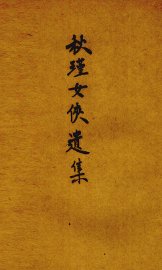 秋瑾女俠遺集